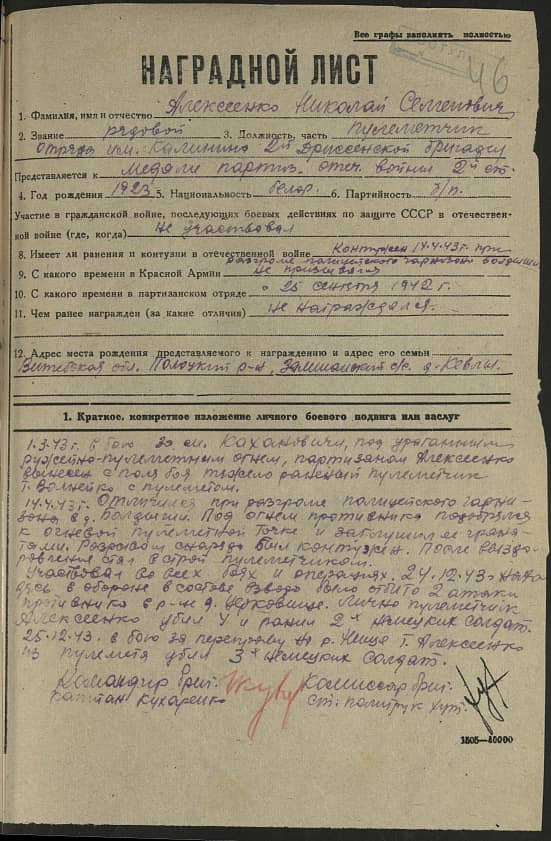 Все графы заполнять полностью
46
НАГРАДНОЙ ЛИСТ
1. Фамилия, имя и отчество Алексеенко Николай Семенович
2. Звание рядовой 3. Должность, часть пулеметчик
отряда им. Калинина 2ой Дриссенской бригады
Представляется к медали партиз. отеч. войны 2ой ст.
4. Год рождения 1923 5. Национальность белор. 6. Партийность б/п.
Участие в гражданской войне, последующих боевых действиях по защите СССР в отечествен-
ной войне (где, когда) Не участвовал
8. Имеет ли ранения и контузии в отечественной войне контужен 14.4.43г. при
разгроме полицейского гарнизона
9. С какого времени в Красной Армии Не призывался
10. С какого времени в партизанском отряде с 25 сентября 1942 г.
11. Чем ранее награжден (за какие отличия) Не награждался.
12. Адрес места рождения представляемого к награждению и адрес его семьи
Витебская обл. Полоцкий р-н, с/с. д.
1. Краткое, конкретное изложение личного боевого подвига или заслуг
1.3.43г. в бою за м. Кахановичи, под ураганным
ружейно-пулеметным огнем, партизаном Алексеенко
вынесен с поля боя тяжело раненый пулеметчик
т. с пулеметом.
14.4.43г. Отличился при разгроме полицейского гарни-
зона в д. Под огнем противника подобрался
к огневой пулеметной точке и заглушил ее грана-
тами. Разрывом снаряда был контужен. После выздо-
ровления стал в строй пулеметчиком.
Участвовал во всех боях и операциях. 24.12.43г. нахо-
дясь в обороне в составе взвода было отбито 2 атаки
противника в р-не д. Лично пулеметчик
Алексеенко убил 4 и ранил 2х немецких солдат.
25.12.43. в бою за переправу на р. Нища т. Алексеенко
из пулемета убил 3х немецких солдат.
Командир бриг. Комиссар бриг.
Капитан Кухаренко ст. политрук
1505—40000